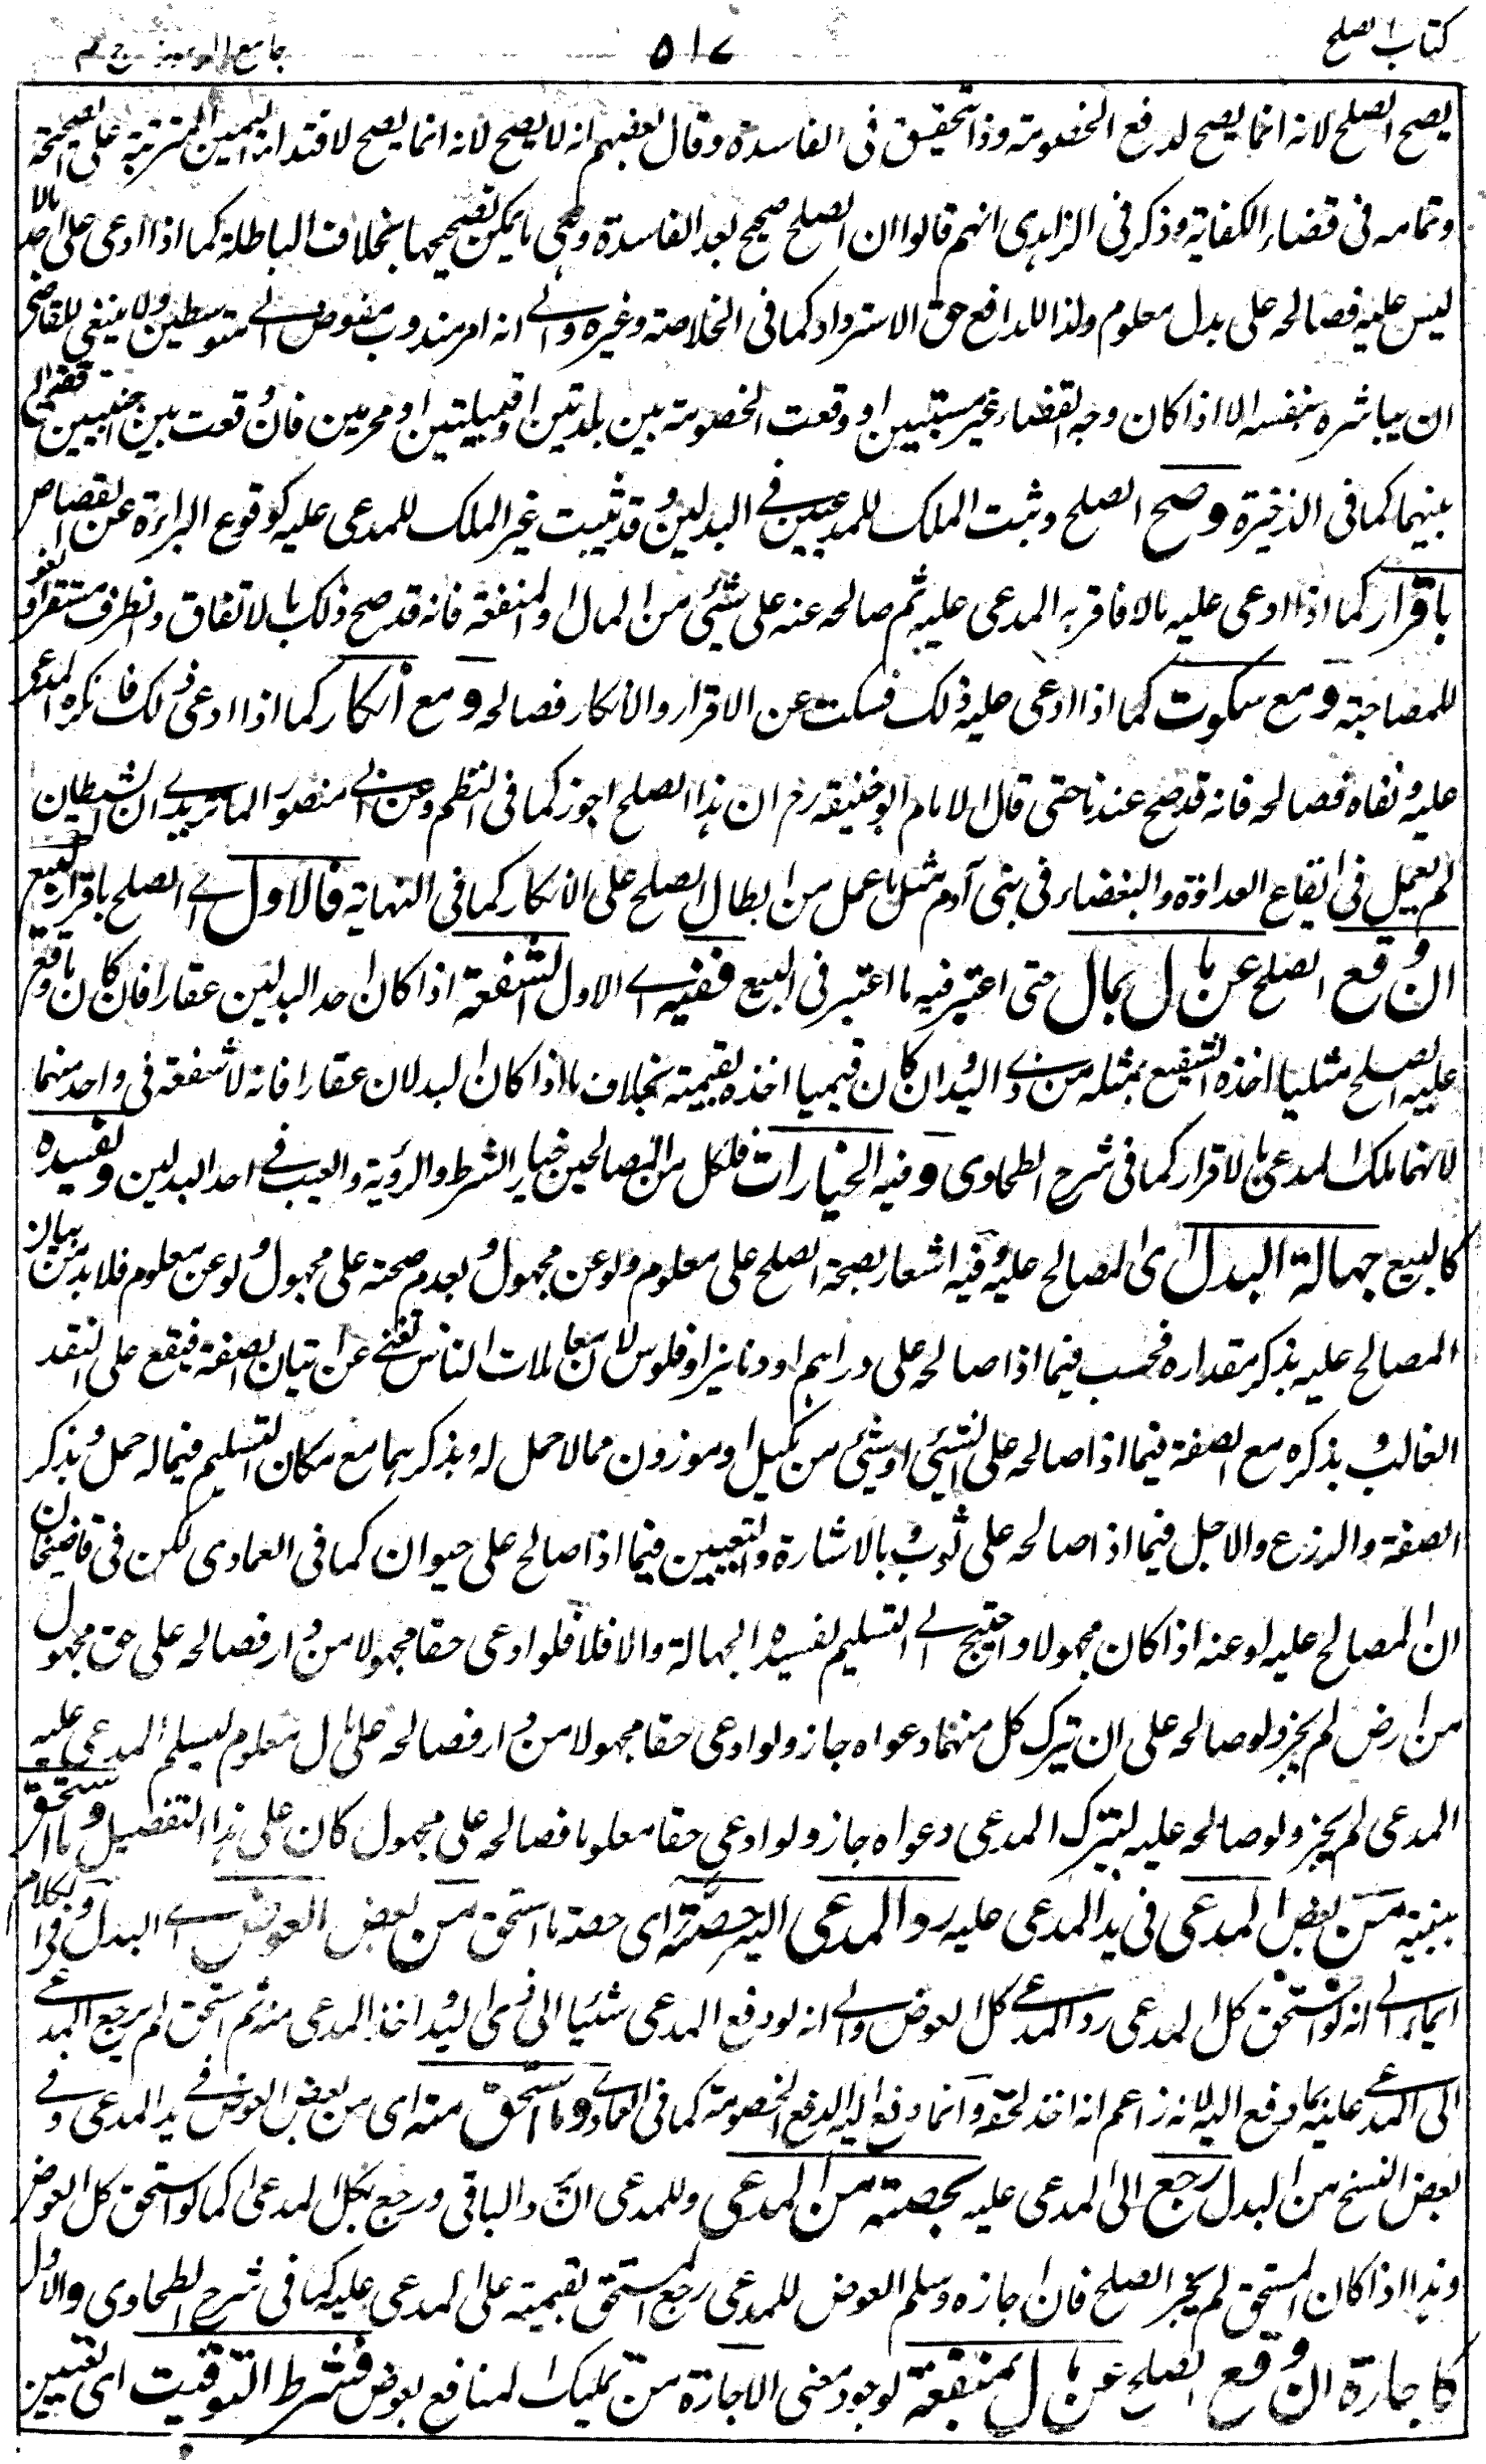 كتاب الصلح ٥١٧ جامع الرموز ج م
يصح الصلح لانه انما يصح لدفع الخصومة وذا تحقيق فى الفاسدة وقال بعضهم انه لا يصح لانه انما يصح لافتداء اليمين المترتبة على الصحة
وتمامه فى قضاء الكفاية وذكر فى الزاهدى انهم قالوا ان الصلح صحيح بعد الفاسدة وهى ما يمكن تصحيحها بخلاف الباطلة كما اذا ادعى على احد مالا
ليس عليه فصالحه على بدل معلوم ولذا للدافع حق الاسترداد كما فى الخلاصة وغيره والى انه امر مندوب مفوض الى متوسطين ولا ينبغى للقاضى
ان يباشره بنفسه الا اذا كان وجه القضاء غير مستبين او وقعت الخصومة بين بلدتين او قبيلتين او محرمين فان وقعت بين اجنبيين قضى
بينهما كما فى الذخيرة وصح الصلح وثبت الملك للمدعيين فى البدلين وقد يثبت غير الملك للمدعى عليه كوقوع البراءة عن القصاص
باقرار كما اذا ادعى عليه مالا فاقر به المدعى عليه ثم صالحه عنه على شئ من المال او المنفعة فانه قد صح ذلك بالاتفاق والظرف مستقر او لغو
للمصاحبة ومع سكوت كما اذا ادعى عليه ذلك فسكت عن الاقرار والانكار فصالحه ومع انكار كما اذا ادعى ذلك فانكره المدعى
عليه ونفاه فصالحه فانه قد صح عندنا حتى قال الامام ابو حنيفة رح ان هذا الصلح اجوز كما فى النظم وعن ابى منصور الماتريدى ان الشيطان
لم يعمل فى ايقاع العداوة والبغضاء فى بنى آدم مثل ما عمل من ابطال الصلح على الانكار كما فى النهاية فالاول اى الصلح باقرار كالبيع
ان وقع الصلح عن مال بمال حتى اعتبر فيه ما اعتبر فى البيع ففيه اى الاول الشفعة اذا كان احد البدلين عقارا فان كان ما وقع
عليه الصلح مثليا اخذه الشفيع بمثله من ذى اليد وان كان قيميا اخذه بقيمته بخلاف ما اذا كان البدلان عقارا فانه لا شفعة فى واحد منهما
لانهما ملك المدعى بالاقرار كما فى شرح الطحاوى وفيه الخيارات فلكل من المتصالحين خيار الشرط والرؤية والعيب فى احد البدلين ويفسده
كالبيع جهالة البدل اى المصالح عليه وفيه اشعار بصحة الصلح على معلوم ولو عن مجهول وبعدم صحته على مجهول ولو عن معلوم فلا بد من بيان
المصالح عليه بذكر مقداره فحسب فيما اذا صالحه على دراهم او دنانير او فلوس لان معاملات الناس تغنى عن اتيان بصفة فيقع على النقد
الغالب وبذكره مع الصفة فيما اذا صالحه على الشئ او شئ من مكيل او موزون مما لا حمل له وبذكر بهما مع مكان التسليم فيما له حمل وبذكر
الصفة والذرع والاجل فيما اذا صالحه على ثوب وبالاشارة والتعيين فيما اذا صالح على حيوان كما فى العمادى لكن فى قاضيخان
ان المصالح عليه لو عنه اذا كان مجهولا واحتيج الى التسليم يفسده الجهالة والا فلا فلو ادعى حقا مجهولا من دار فصالحه على حق مجهول
من ارض لم يجز ولو صالحه على ان يترك كل منهما دعواه جاز ولو ادعى حقا مجهولا من دار فصالحه على مال معلوم ليسلم المدعى عليه
المدعى لم يجز ولو صالحه عليه ليترك المدعى دعواه جاز ولو ادعى حقا معلوما فصالحه على مجهول كان على هذا التفصيل وما استحق
ببينة من بعض المدعى فى يد المدعى عليه رد المدعى اليه حصته اى حصة ما استحق من بعض العوض اى البدل وفى الكلام
ايماء الى انه لو استحق كل المدعى رد المدعى كل العوض والى انه لو دفع المدعى شيئا الى ذى اليد واخذ المدعى منه ثم استحق لم يرجع المدعى
الى المدعى عليه بما دفع اليه لانه زاعم انه اخذ لحقه وانما دفع اليه لدفع الخصومة كما فى العمادى وما استحق منه اى من بعض العوض فى يد المدعى وفى
بعض النسخ من البدل رجع الى المدعى عليه بحصته من المدعى وللمدعى ان يرد الباقى ورجع بكل المدعى كما لو استحق كل العوض
وهذا اذا كان المستحق لم يجز الصلح فان اجازه وسلم العوض للمدعى رجع المستحق بقيمته على المدعى عليه كما فى شرح الطحاوى والاول
كاجارة ان وقع الصلح عن مال بمنفعة لوجود معنى الاجارة من تمليك المنافع بعوض فشرط التوقيت اى تعيين